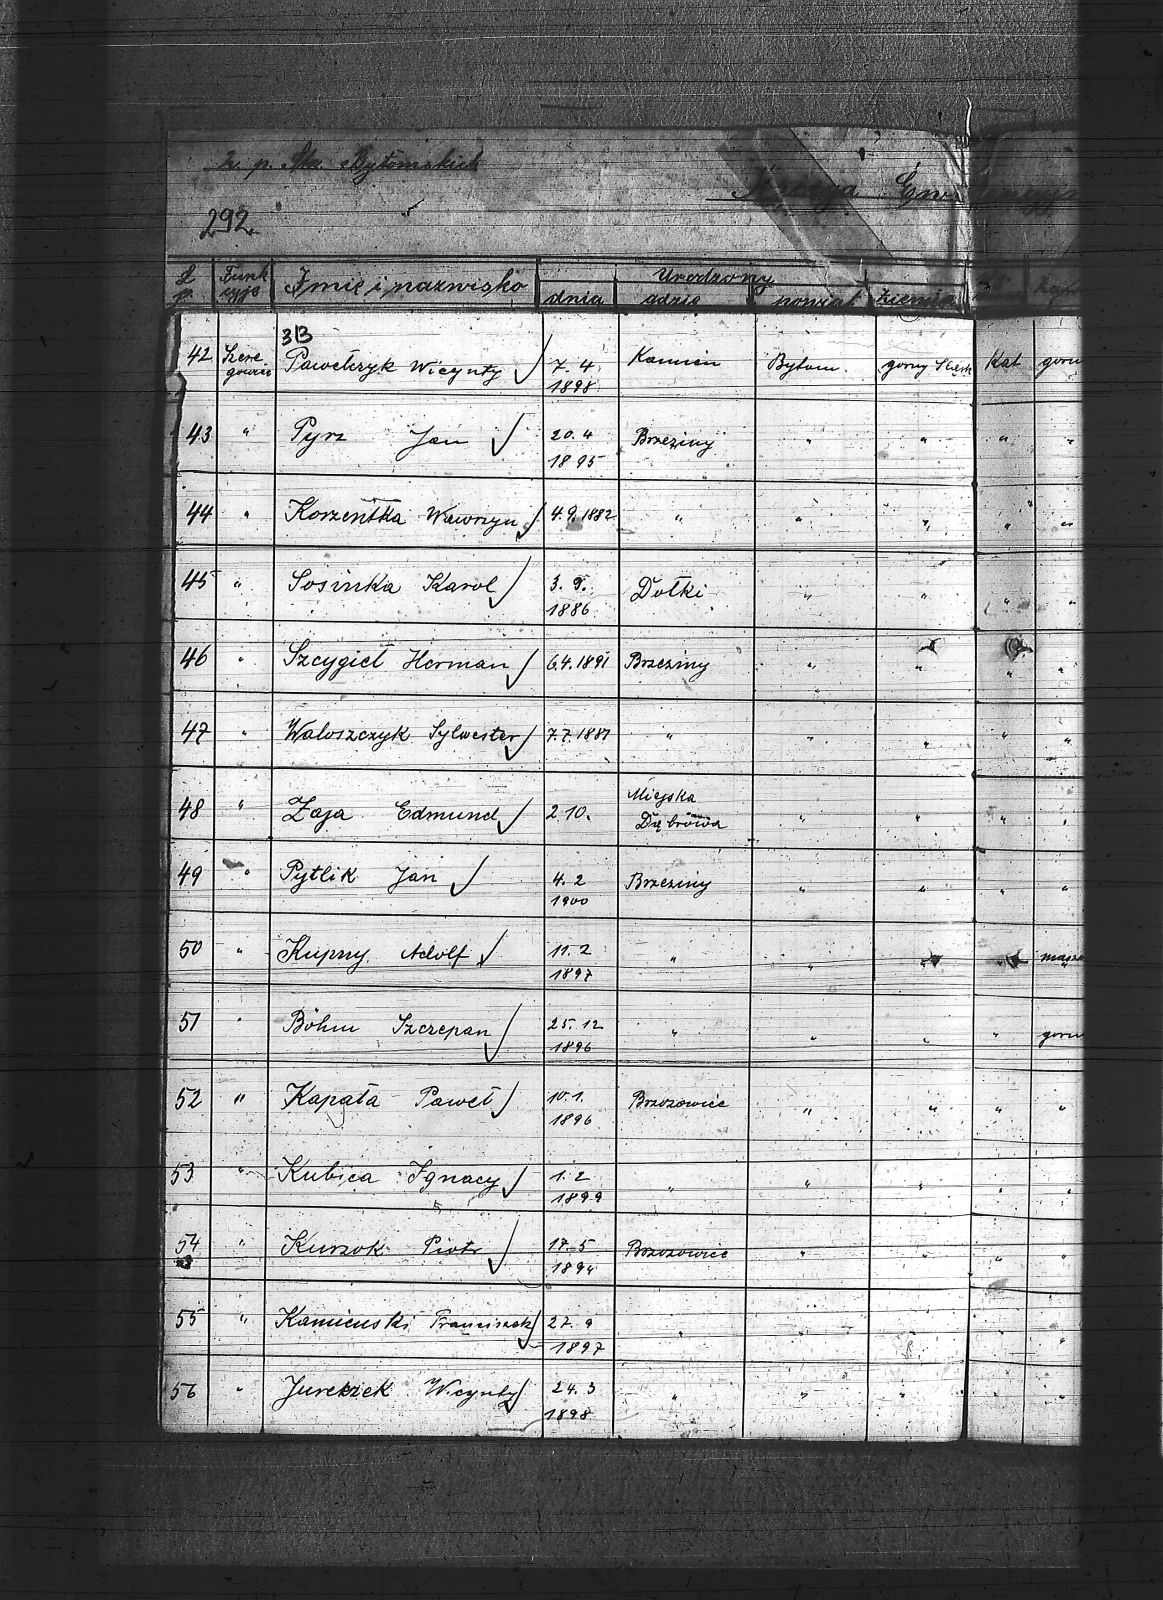 2. p. Strz. Bytomskich
292.
L. p. Funkcyje Imię i nazwisko Urodzony
dnia gdzie powiat ziemia
3B
42 Szeregowiec Pawełczyk Wicynty 7. 4. 1898 Kamień Bytom. gorny Śląsk Kat gorn
43 " Pyrz Jan 20. 4 1895 Brzeziny " " " "
44 " Korzentka Wawrzyn 4. 9. 1882 " " " " "
45 " Sosinka Karol 3. 9. 1886 Dołki " " " "
46 " Szcygieł Herman 6.4.1891 Brzeziny " " " "
47 " Waloszczyk Sylwester 7.7.1887 " " " " "
48 " Zaja Edmund 2 10. Miejska Dąbrowa " " " "
49 " Pytlik Jan 4. 2 1900 Brzeziny " " " "
50 " Kupny Adolf 11. 2 1897 " " " "
51 " Böhm Szczepan 25. 12 1896 " " " " gorn
52 " Kapała Paweł 10. 1. 1896 Brzozowice " " " "
53 " Kubica Ignacy 1. 2 1899 " " " " "
54 " Kurzok Piotr 17. 5 1894 Brzozowice " " " "
55 " Kamieński Franciszek 27. 9 1897 " " " " "
56 " Jureczek Wicynty 24. 3 1898 " " " " "